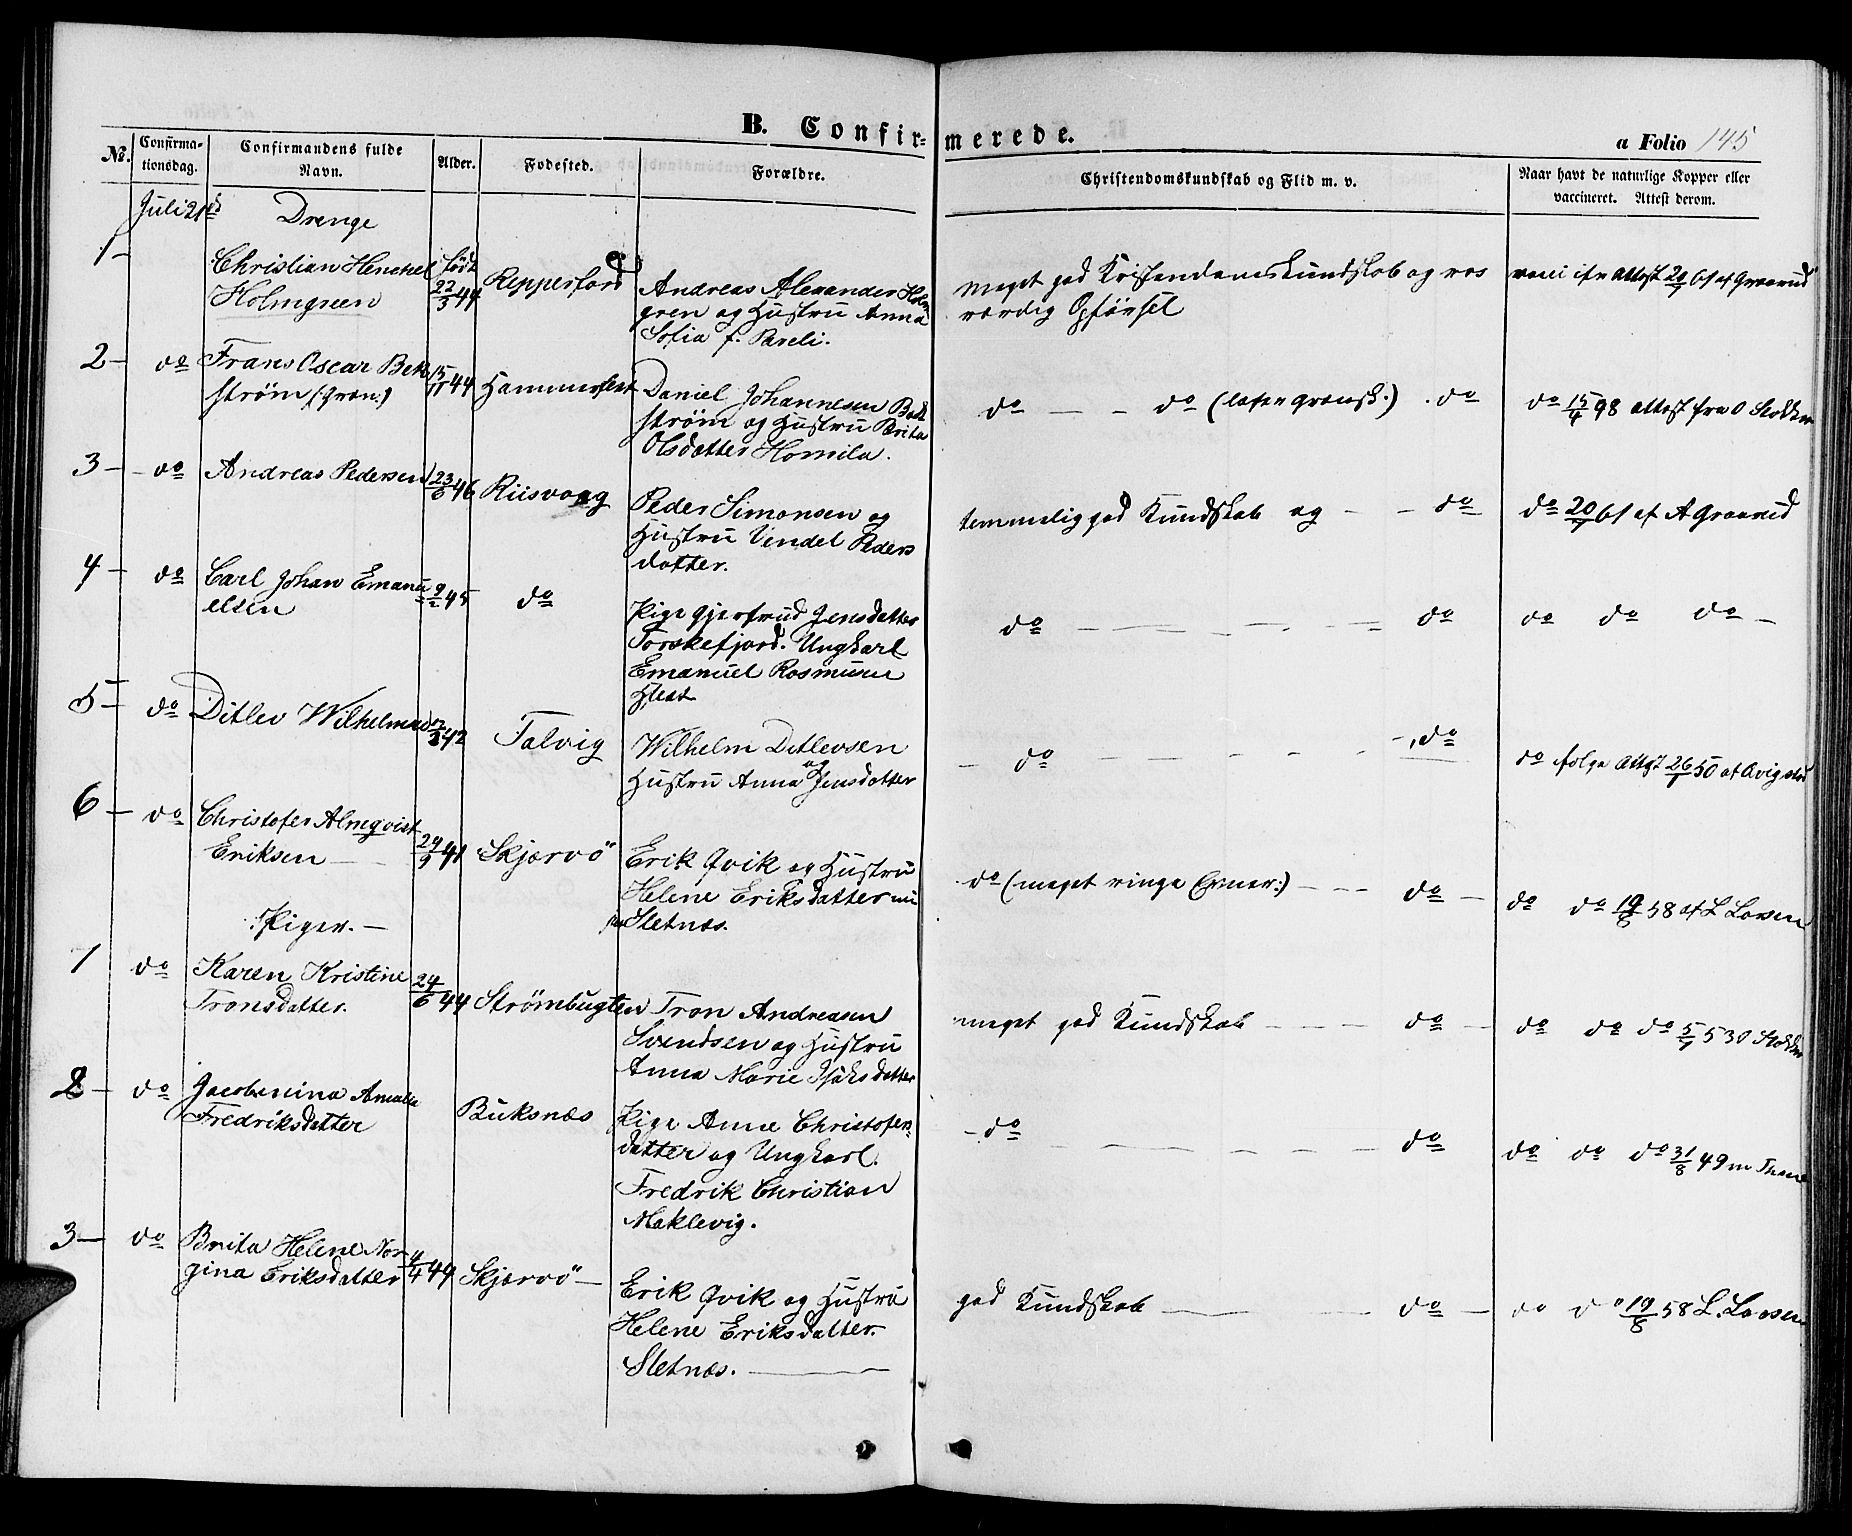 B. Confirmerede.
a Folio 145
No.
Confirmationsdag.
Confirmandens fulde Navn.
Alder.
Fødested.
Forældre.
Christendomskundskab og Flid m. v.
Naar havt de naturlige Kopper eller vaccineret. Attest derom.
Juli 21
Drenge
1 –
Christian Henchel
Holmgreen
født
22/3 44
Repperfjord
Andreas Alexander Holm
gren og Hustru Anna
Sofia f. Pareli.
Meget god Kristendomskundskab og ros
værdig Opførsel
vacci attest 20/7 61 af Graarud
2 –
do
Frans Oscar Bek
strøm (Qvæn:)
15/11 44
Hammerfest
Daniel Johannesen Bek
strøm og Hustru Brita
Olsdatter Homila.
do – – do (læser qvænsk:) do
do 15/4 98 attest fra O Stokken
3 –
do
Andreas Pedersen
23/6 46
Riisvaag
Peder Simonsen og
Hustru Vendel Peders
datter.
temmelig god Kundskab og – – do
do 20/7 61 af A Graarud
4 –
do
Carl Johan Emanu
elsen
9/2 45
do
Pige Gjertrud Jensdatter
Torskefjord. Ungkarl
Emanuel Rasmusen
do – – – do
do do do –
5 –
do
Ditlev Wilhelmsen
42
Talvig
Wilhelm Ditlevsen
og
Hustru Anna Jensdatter
– do – – – do
do følge Attest 26/1 50 af Qvigstad
6 –
do
Christofer Almqvist
Eriksen –
29/9 41
Skjærvö
Erik Qvik og Hustru
Helene Eriksdatter nu
Sletnæs.
do (meget ringe Evner:) – – do –
do do 19/8 58 af L Larsen
Piger. –
1
do
Karen Kristine
Tronsdatter.
24/6 44
Strømbugten
Tron Andreasen
Svendsen og Hustru
Anna Marie Isaksdatter
meget god Kundskab – – – do –
do do do 5/7 53 O Stokken
2 –
do
Jacobenina Amalia
Fredriksdatter
Buksnæs
Pige Anne Christofers
datter og Ungkarl.
Fredrik Christian
Maklevig.
– do – – – do
do do do 31/8 49
3 –
do
Brita Helene Nor
gina Eriksdatter
4/4 49
Skjærvö –
Erik Qvik og Hustru
Helene Eriksdatter.
Sletnæs. –
god Kundskab – – do –
do do 19/8 58 L. Larsen